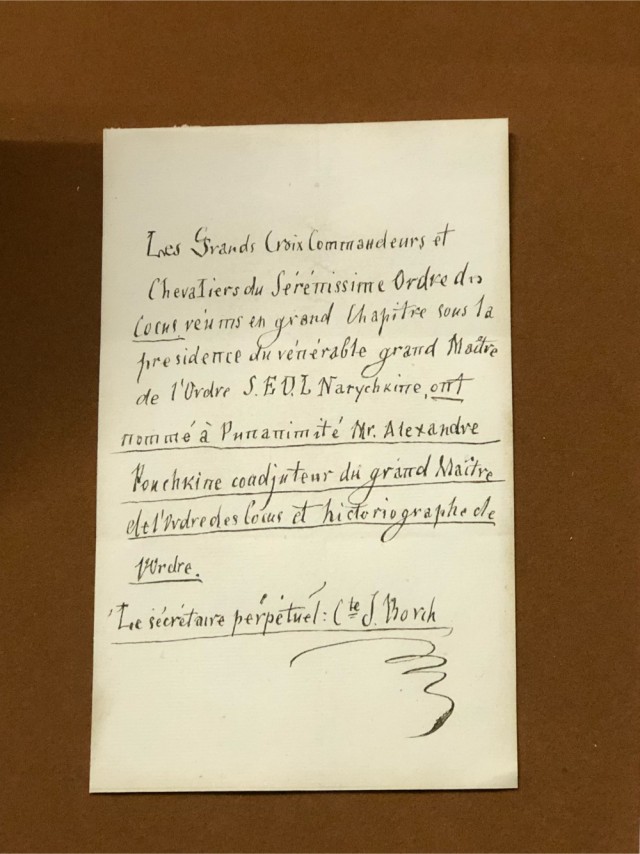 Les Grands Croix Commandeurs et
Chevaliers du Sérénissime Ordre des
Cocus, réunis en grand Chapitre sous la
presidence du vénérable grand Maître
de l'Ordre S. E. D. L Narychkine, ont
nommé à l'unanimité Mr. Alexandre
Pouchkine coadjuteur du grand Maître
de l'Ordre des Cocus et historiographe de
l'Ordre.
Le sécrétaire perpétuel: Cte J. Borch